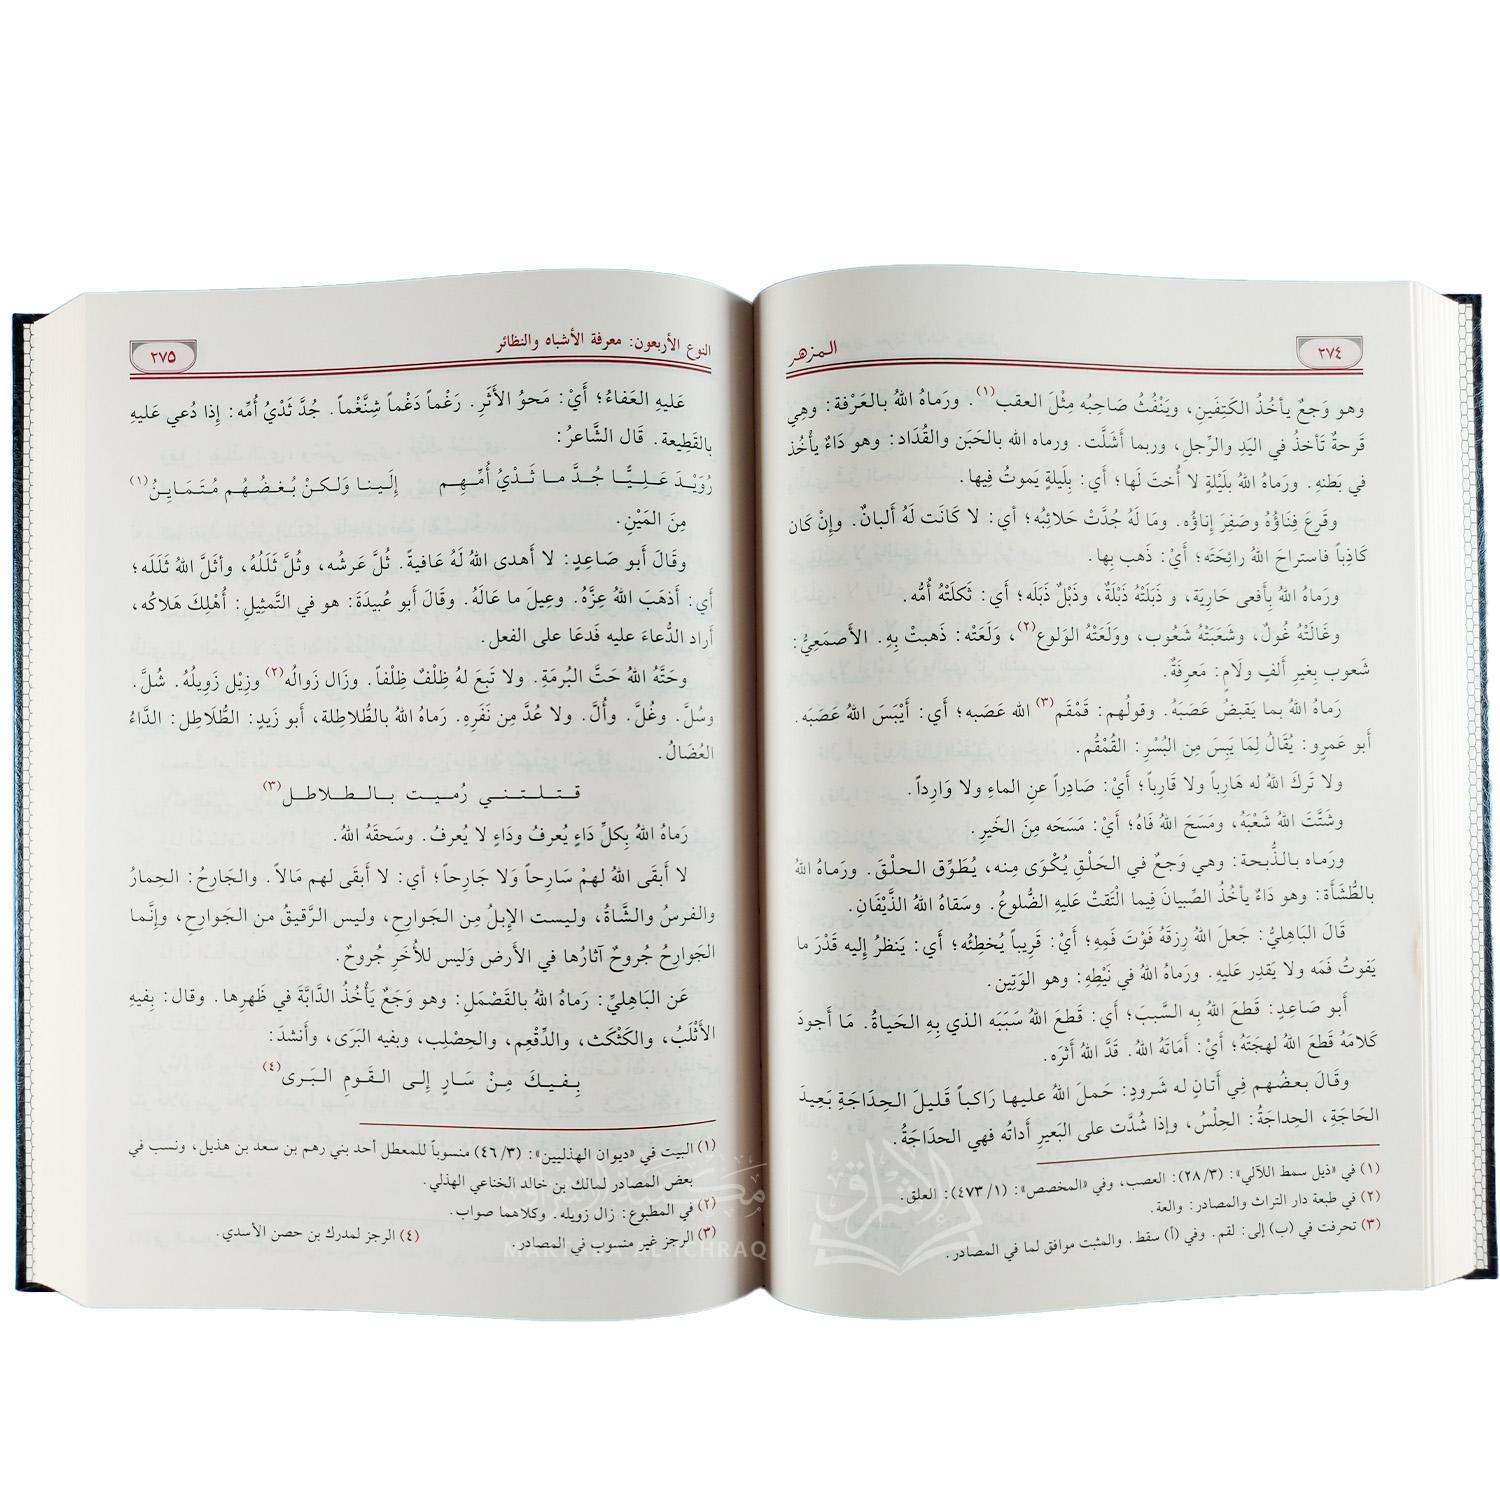 ٢٧٤
المزهر
وهو وَجَعٌ يأخُذُ الكَتِفَينِ، ويَنْفُثُ صَاحِبُه مِثْلَ العقب(١). ورَماهُ اللهُ بالعَرْفة: وهِي
قَرحةٌ تَأخذُ في اليَدِ والرِّجلِ، وربما أَشَلَّت. ورماه الله بالحَبَن والقُدَاد: وهو دَاءٌ يأْخُذ
في بَطنهِ. ورَماهُ اللهُ بلَيْلةٍ لا أُختَ لَها؛ أي: بِلَيلةٍ يَموتُ فِيها.
وقَرِعَ فِنَاؤُهُ وصَفِرَ إِناؤُه. ومَا لَهُ جُدَّتْ حَلائِبُه؛ أي: لا كَانَت لَهُ ألبانٌ. وإِنْ كَان
كَاذِباً فاستراحَ اللهُ رائِحَتَه؛ أيْ: ذَهب بِها.
ورَماهُ اللهُ بِأَفعى حَارِيَة، و ذَبَلَتْهُ ذَبْلَةٌ، وذَبْلٌ ذَبَلَه؛ أي: ثَكلَتْهُ أُمُّه.
وغَالَتْهُ غُولٌ، وشَعَبَتْهُ شَعُوب، ووَلَعَتْهُ الوَلوع(٢)، وَلَعَتْه: ذَهبتْ بِهِ. الأَصمَعِيُّ:
شَعوب بِغيرِ أَلفٍ ولَامٍ: مَعرِفَةٌ.
رَماهُ اللهُ بما يَقبضُ عَصَبَهُ. وقولُهم: قَمْقَم(٣) الله عَصَبه؛ أي: أَيْبَسَ اللهُ عَصَبَه.
أبو عَمرٍو: يُقَالُ لِمَا يَبِسَ مِن البُسْرِ: القُمْقُم.
ولا تَركَ اللهُ له هَارِباً ولا قَارِباً؛ أيْ: صَادِراً عنِ الماءِ ولا وَارِداً.
وشَتَّتَ اللهُ شَعْبَهُ، ومَسَحَ اللهُ فَاهُ؛ أيْ: مَسَحَه مِنَ الخَيرِ.
ورَماه بالذُّبحة: وهي وَجعٌ في الحَلْقِ يُكْوَى مِنه، يُطَوِّق الحلْقَ. ورَماهُ اللهُ
بالطُّشَأَة: وهو دَاءٌ يأخُذُ الصِّبيانَ فِيما الْتَقتْ عَليهِ الضُّلوعُ. وسَقاهُ اللهُ الذَّيْفَانِ.
قَالَ البَاهِليُّ: جَعلَ اللهُ رِزقَهُ فَوْتَ فَمِهِ؛ أيْ: قَرِيباً يُخطِئُه؛ أي: يَنظرُ إِليه قَدْرَ ما
يَفوتُ فَمَه ولا يَقدِر عَليهِ. ورَماهُ اللهُ في نَيْطِهِ: وهو الوَتِين.
أَبو صَاعِدٍ: قَطعَ اللهُ بِه السَّببَ؛ أي: قَطعَ اللهُ سَبَبَه الذي بِهِ الحَياةُ. مَا أَجودَ
كَلامَهُ قَطعَ اللهُ لهجَتَهُ؛ أيْ: أَمَاتَهُ اللهُ. قَدَّ اللهُ أَثرَه.
وقَالَ بعضُهم فِي أَتانٍ له شَرودٍ: حَملَ اللهُ عليها رَاكباً قَليلَ الحِدَاجَةِ بَعِيدَ
الحَاجَةِ، الحِداجَةُ: الحِلْسُ، وإذا شُدَّت على البَعيرِ أَداتُه فهي الحدَاجَةُ.
(١) في «ذيل سمط اللآلي»: (٢٨/٣): العصب، وفي «المخصص»: (٤٧٣/١): العلق.
(٢) في طبعة دار التراث والمصادر: والعة.
(٣) تحرفت في (ب) إلى: لقم. وفي (أ) سقط. والمثبت موافق لما في المصادر.
النوع الأربعون: معرفة الأشباه والنظائر
٢٧٥
عَليهِ العَفاءُ؛ أَيْ: مَحوُ الأَثَرِ. رَغْماً دَغْماً شِنَّغْماً. جُدَّ ثَدْيُ أُمِّه: إِذا دُعي عَليهِ
بالقَطِيعة. قَال الشَّاعرُ:
رُوَيْدَ عَلِيًّا جُدَّ ما ثَدْيُ أُمِّهِم إِلَينا وَلكنْ بُغضُهُم مُتَمَايِنُ(١)
مِنَ المَيْنِ.
وقَالَ أبو صَاعِدٍ: لا أَهدى اللهُ لَهُ عَافيةً. ثُلَّ عَرشُه، وثُلَّ ثَلَلُهُ، وأَثلَّ اللهُ ثَلَلَه؛
أي: أَذهَبَ اللهُ عِزَّهُ. وعِيلَ ما عَالَهُ. وقَالَ أبو عُبيدَةَ: هو في التَّمثِيلِ: أُهْلِكَ هَلاكُه،
أَراد الدُّعاءَ عليه فَدعَا على الفعل.
وحَتَّهُ اللهُ حَتَّ البُرمَةِ. ولا تَبعَ لهُ ظِلْفٌ ظِلْفاً. وزَال زَوالُه(٢) وزِيْل زَوِيلُهُ. شُلَّ.
وسُلَّ. وغُلَّ. وأُلَّ. ولا عُدَّ مِن نَفَرِهِ. رَماهُ اللهُ بالطُّلاطِلة، أبو زَيدٍ: الطُّلاطِل: الدَّاءُ
العُضَالُ.
قتلتني رُميت بالطلاطل(٣)
رَماهُ اللهُ بِكلِّ دَاءٍ يُعرفُ ودَاءٍ لا يُعرفُ. وسَحقَهُ اللهُ.
لا أَبقَى اللهُ لهمْ سَارِحاً وَلا جَارِحاً؛ أي: لا أَبقَى لهم مَالاً. والجَارِحُ: الحِمارُ
والفرسُ والشَّاةُ، وليست الإبلُ مِن الجَوارِحِ، وليس الرَّقيقُ من الجَوارحِ، وإنَّما
الجَوارِحُ جُروحٌ آثارُها في الأَرض وَليس للأُخَرِ جُروحٌ.
عَن البَاهِليِّ: رَماهُ اللهُ بالقَصْمَلِ: وهو وَجَعٌ يَأْخُذُ الدَّابَّةَ في ظَهرِها. وقال: بِفِيهِ
الأَثْلَبُ، والكَثْكَث، والدِّقْعِم، والحِصْلِب، وبفيه البَرَى، وأَنشدَ:
بِفيكَ مِنْ سَارٍ إِلى القَومِ البَرى(٤)
(١) البيت في «ديوان الهذليين»: (٤٦/٣) منسوباً للمعطل أحد بني رهم بن سعد بن هذيل، ونسب في
بعض المصادر لمالك بن خالد الخناعي الهذلي.
(٢) في المطبوع: زال زويله. وكلاهما صواب.
(٣) الرجز غير منسوب في المصادر. (٤) الرجز لمدرك بن حصن الأسدي.
مكتبة الإشراق
MAKTABA AL-ICHRAQ
الإشراق